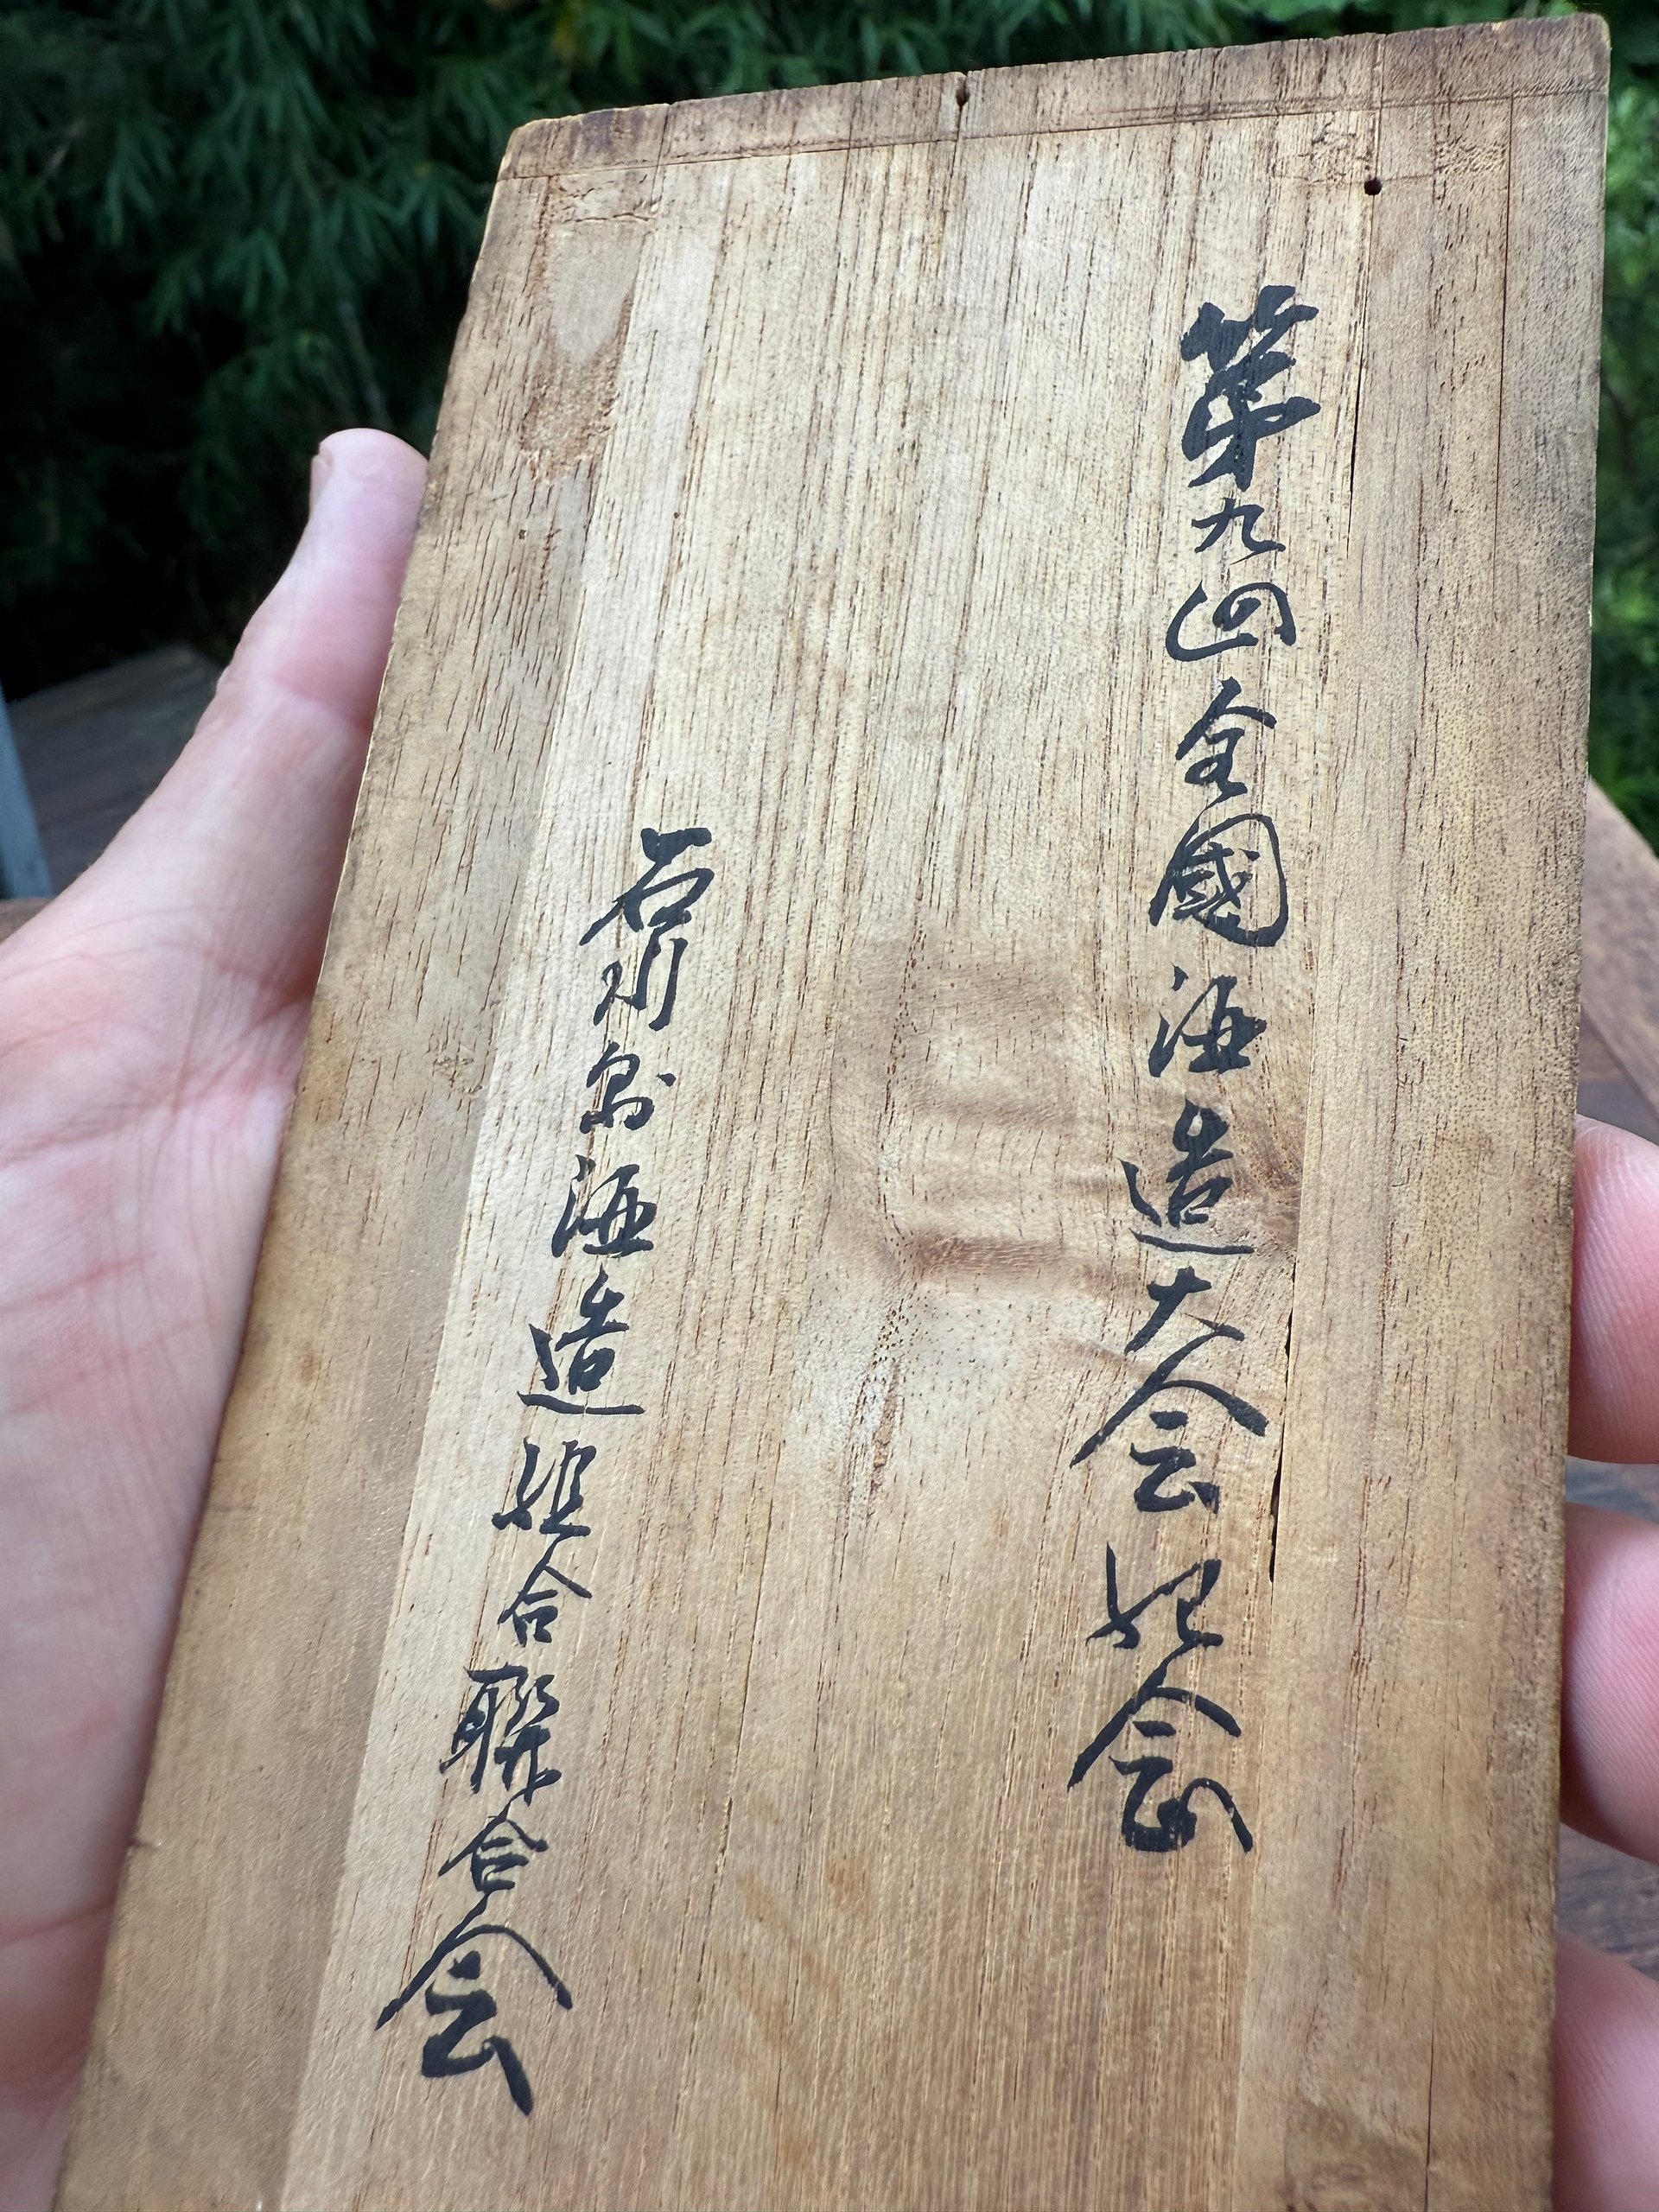 第九回全國酒造大会紀念
石川縣酒造組合聯合会